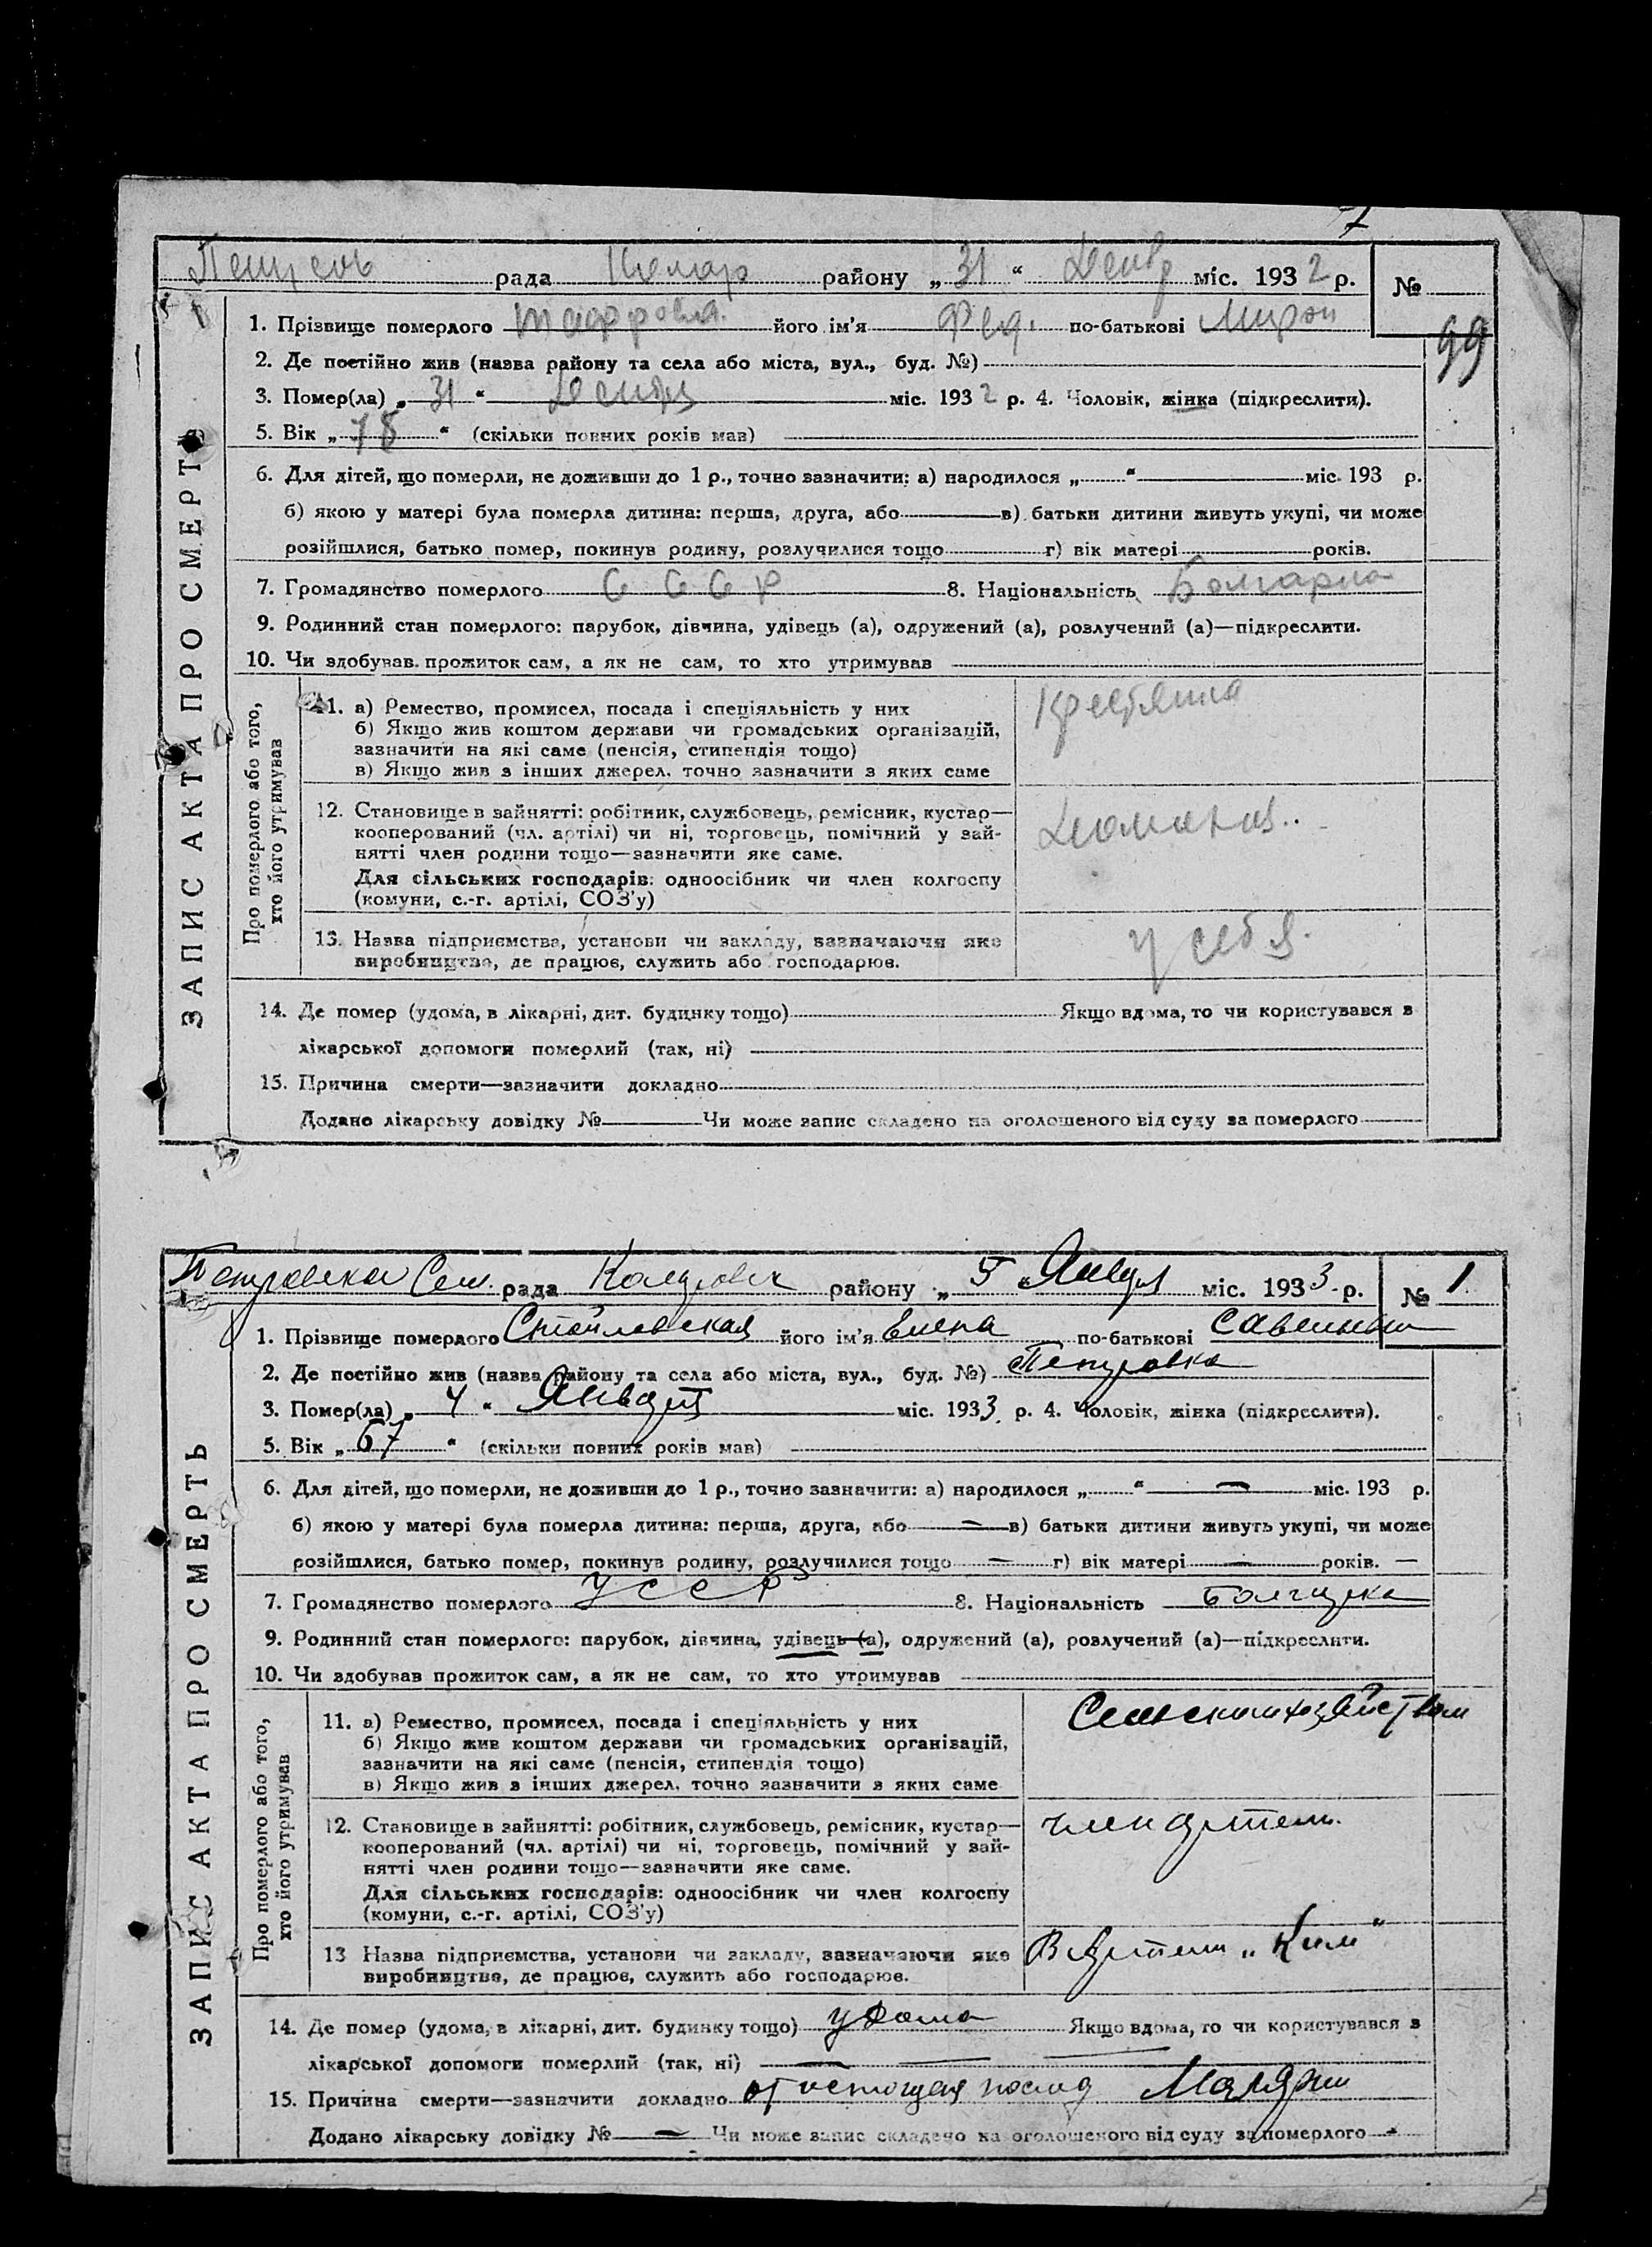 7
рада района району „ 31 “ Декабр міс. 1932 р. №
99
1. Прізвище померлого його ім'я Фед. по-батькові Мирон
2. Де постійно жив (назва району та села або міста, вул., буд. №)
3. Помер(ла) „ 31 “ Декабря міс. 1932 р. 4. Чоловік, жінка (підкреслити).
5. Вік „ 78 “ (скільки повних років мав)
6. Для дітей, що померли, не доживши до 1 р., точно зазначити: а) народилося „ “ міс. 193 р.
б) якою у матері була померла дитина: перша, друга, або в) батьки дитини живуть укупі, чи може
розійшлися, батько помер, покинув родину, розлучилися тощо г) вік матері років.
7. Громадянство померлого С С С Р 8. Національність Болгарка
9. Родинний стан померлого: парубок, дівчина, удівець (а), одружений (а), розлучений (а)—підкреслити.
10. Чи здобував прожиток сам, а як не сам, то хто утримував
ЗАПИС АКТА ПРО СМЕРТЬ
Про померлого або того, хто його утримував
11. а) Ремество, промисел, посада і спеціяльність у них
б) Якщо жив коштом держави чи громадських організацій,
зазначити на які саме (пенсія, стипендія тощо)
в) Якщо жив з інших джерел, точно зазначити з яких саме
12. Становище в зайнятті: робітник, службовець, ремісник, кустар—
кооперований (чл. артілі) чи ні, торговець, помічний у зай-
нятті член родини тощо—зазначити яке саме.
Для сільських господарів: одноосібник чи член колгоспу
(комуни, с.-г. артілі, СОЗ'у)
13. Назва підприємства, установи чи закладу, зазначаючи яке
виробництво, де працює, служить або господарює.
у себя.
14. Де помер (удома, в лікарні, дит. будинку тощо) Якщо вдома, то чи користувався з
лікарської допомоги померлий (так, ні)
15. Причина смерти—зазначити докладно
Додано лікарську довідку № Чи може запис складено на оголошеного від суду за померлого
Петровская Сель. рада району „ 5 “ Января міс. 1933 р. № 1
1. Прізвище померлого Стойловская його ім'я Елена по-батькові
2. Де постійно жив (назва району та села або міста, вул., буд. №) Петровка
3. Помер(ла) „ 4 “ Января міс. 1933 р. 4. Чоловік, жінка (підкреслити).
5. Вік „ 67 “ (скільки повних років мав)
6. Для дітей, що померли, не доживши до 1 р., точно зазначити: а) народилося „ “ — міс. 193 р.
б) якою у матері була померла дитина: перша, друга, або — в) батьки дитини живуть укупі, чи може
розійшлися, батько помер, покинув родину, розлучилися тощо — г) вік матері — років. —
7. Громадянство померлого УССР 8. Національність Болгарка
9. Родинний стан померлого: парубок, дівчина, удівець (а), одружений (а), розлучений (а)—підкреслити.
10. Чи здобував прожиток сам, а як не сам, то хто утримував
ЗАПИС АКТА ПРО СМЕРТЬ
Про померлого або того, хто його утримував
11. а) Ремество, промисел, посада і спеціяльність у них
б) Якщо жив коштом держави чи громадських організацій,
зазначити на які саме (пенсія, стипендія тощо)
в) Якщо жив з інших джерел, точно зазначити з яких саме
Сельским хозяйством
12. Становище в зайнятті: робітник, службовець, ремісник, кустар—
кооперований (чл. артілі) чи ні, торговець, помічний у зай-
нятті член родини тощо—зазначити яке саме.
Для сільських господарів: одноосібник чи член колгоспу
(комуни, с.-г. артілі, СОЗ'у)
член артели.
13 Назва підприємства, установи чи закладу, зазначаючи яке
виробництво, де працює, служить або господарює.
В Артели „Ким“
14. Де помер (удома, в лікарні, дит. будинку тощо) у дома Якщо вдома, то чи користувався з
лікарської допомоги померлий (так, ні) — — —
15. Причина смерти—зазначити докладно от Малярии
Додано лікарську довідку № — Чи може запис складено на оголошеного від суду за померлого —